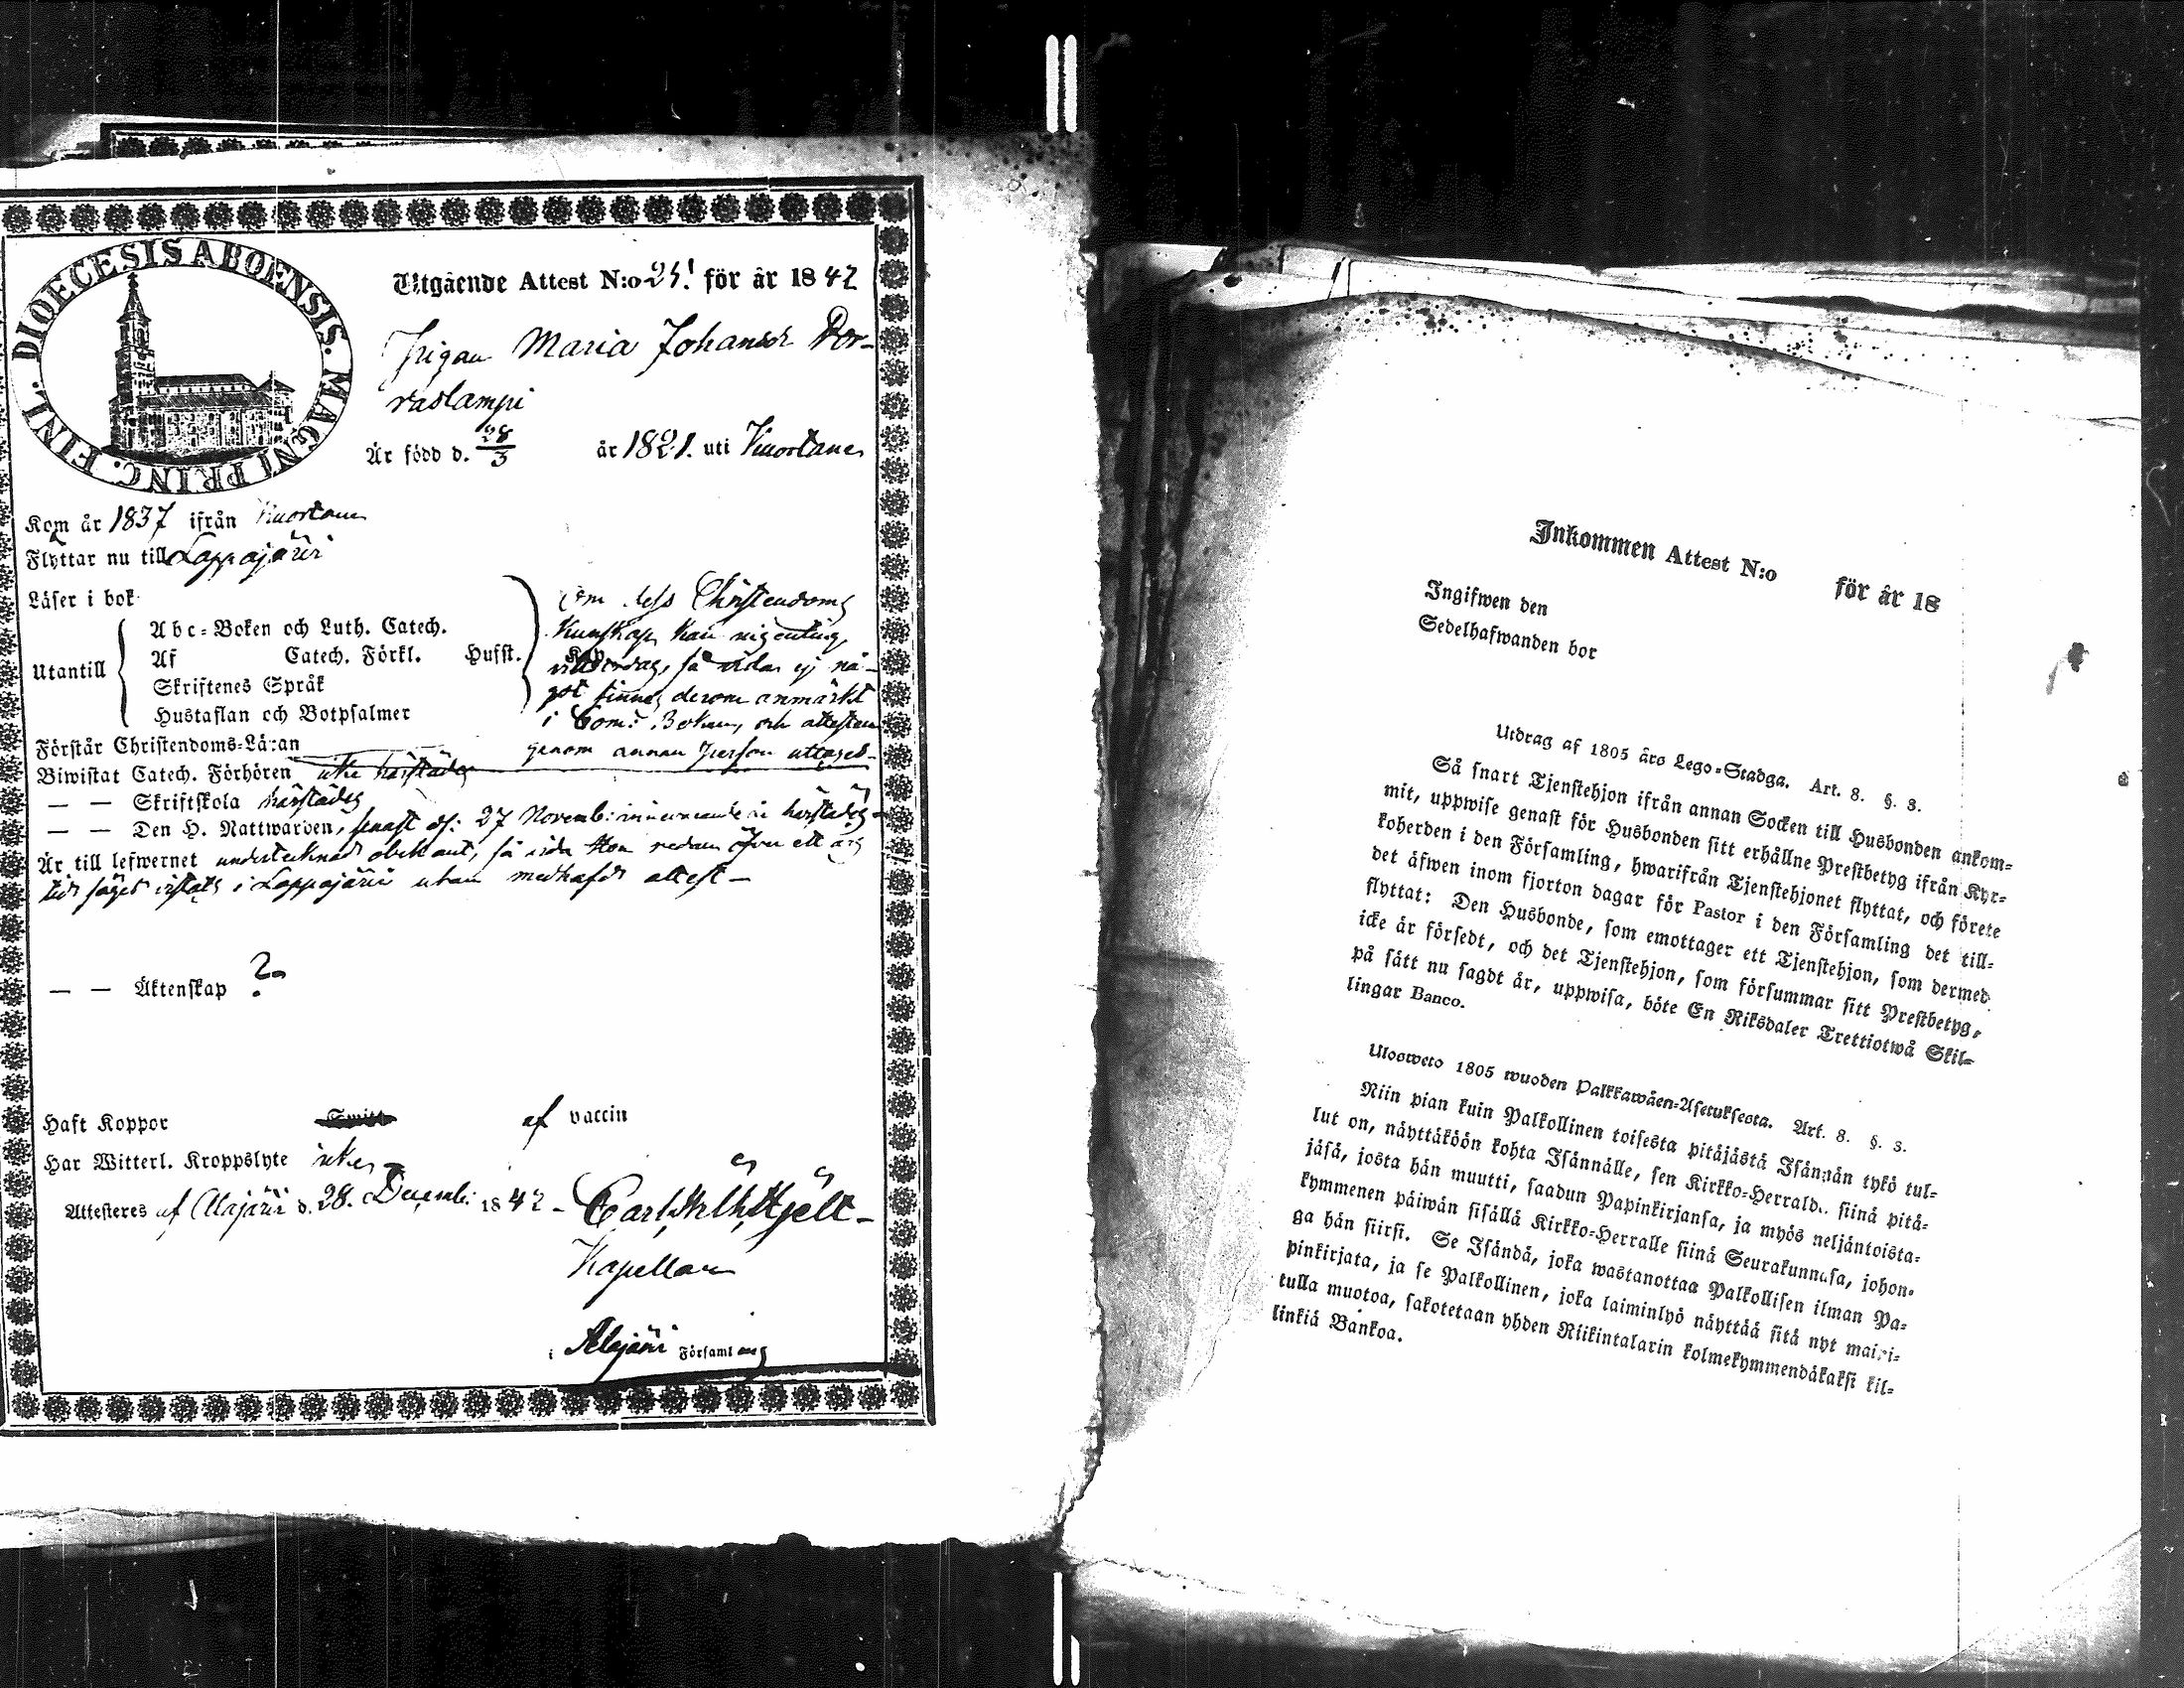 DIOECESIS ABOENSIS. MAGNI PRINC. FINL.
Utgående Attest N:o 25! för år 1842
Pigan Maria Johansdr Por-
raslampi
Är född d. 28/3 år 1821. uti Kuortane
Kom år 1837 ifrån Kuortane
Flyttar nu till Lappajärvi
Läser i bok
Utantill
Abc-Boken och Luth. Catech.
Af Catech. Förkl. Hufst. Kap.
Skriftenes Språk
Hustaflan och Botpsalmer
Om dess Christendoms
kunskap kan ingenting
så vida ej nå-
got finnes derom anmärkt
i Com: Boken, och attesten
genom annan person uttages.
Förstår Christendoms-Läran
Biwistat Catech. Förhören icke härstädes
— — Skriftskola härstädes
— — Den H. Nattwarden, senast d: 27 Novemb: härstädes
Är till lefwernet undertecknad obekant, så vida Hon redan öfver ett års
tid säges vistats i Lappajärvi utan medhafd attest —
— — Äktenskap ?
Haft Koppor af vaccin
Har Witterl. Kroppslyte icke
Attesteres af Alajärvi d. 28. Decemb: 1842 — Carl Wilh. Hjelt —
Kapellan
i Alajärvi Församling
Inkommen Attest N:o för år 18
Ingifwen den
Sedelhafwanden bor
Utdrag af 1805 års Lego-Stadga. Art. 8. §. 3.
Så snart Tjenstehjon ifrån annan Socken till Husbonden ankom-
mit, uppwise genast för Husbonden sitt erhållne Prestbetyg ifrån Kyr-
koherden i den Församling, hwarifrån Tjenstehjonet flyttat, och förete
det äfwen inom fjorton dagar för Pastor i den Församling det till-
flyttat: Den Husbonde, som emottager ett Tjenstehjon, som dermed
icke är försedt, och det Tjenstehjon, som försummar sitt Prestbetyg,
på sätt nu sagdt är, uppwisa, böte En Riksdaler Trettiotwå Skil-
lingar Banco.
Ulosweto 1805 wuoden Palkkawäen-Asetuksesta. Art. 8. §. 3.
Niin pian kuin Palkollinen toisesta pitäjästä Isännän tykö tul-
lut on, näyttäköön kohta Isännälle, sen Kirkko-Herralda siinä pitä-
jäsä, josta hän muutti, saadun Papinkirjansa, ja myös neljäntoista-
kymmenen päiwän sisällä Kirkko-Herralle siinä Seurakunnasa, johon-
ga hän siirsi. Se Isändä, joka wastanottaa Palkollisen ilman Pa-
pinkirjata, ja se Palkollinen, joka laiminlyö näyttää sitä nyt maini-
tulla muotoa, sakotetaan yhden Riikintalarin kolmekymmendäkaksi kil-
linkiä Bankoa.